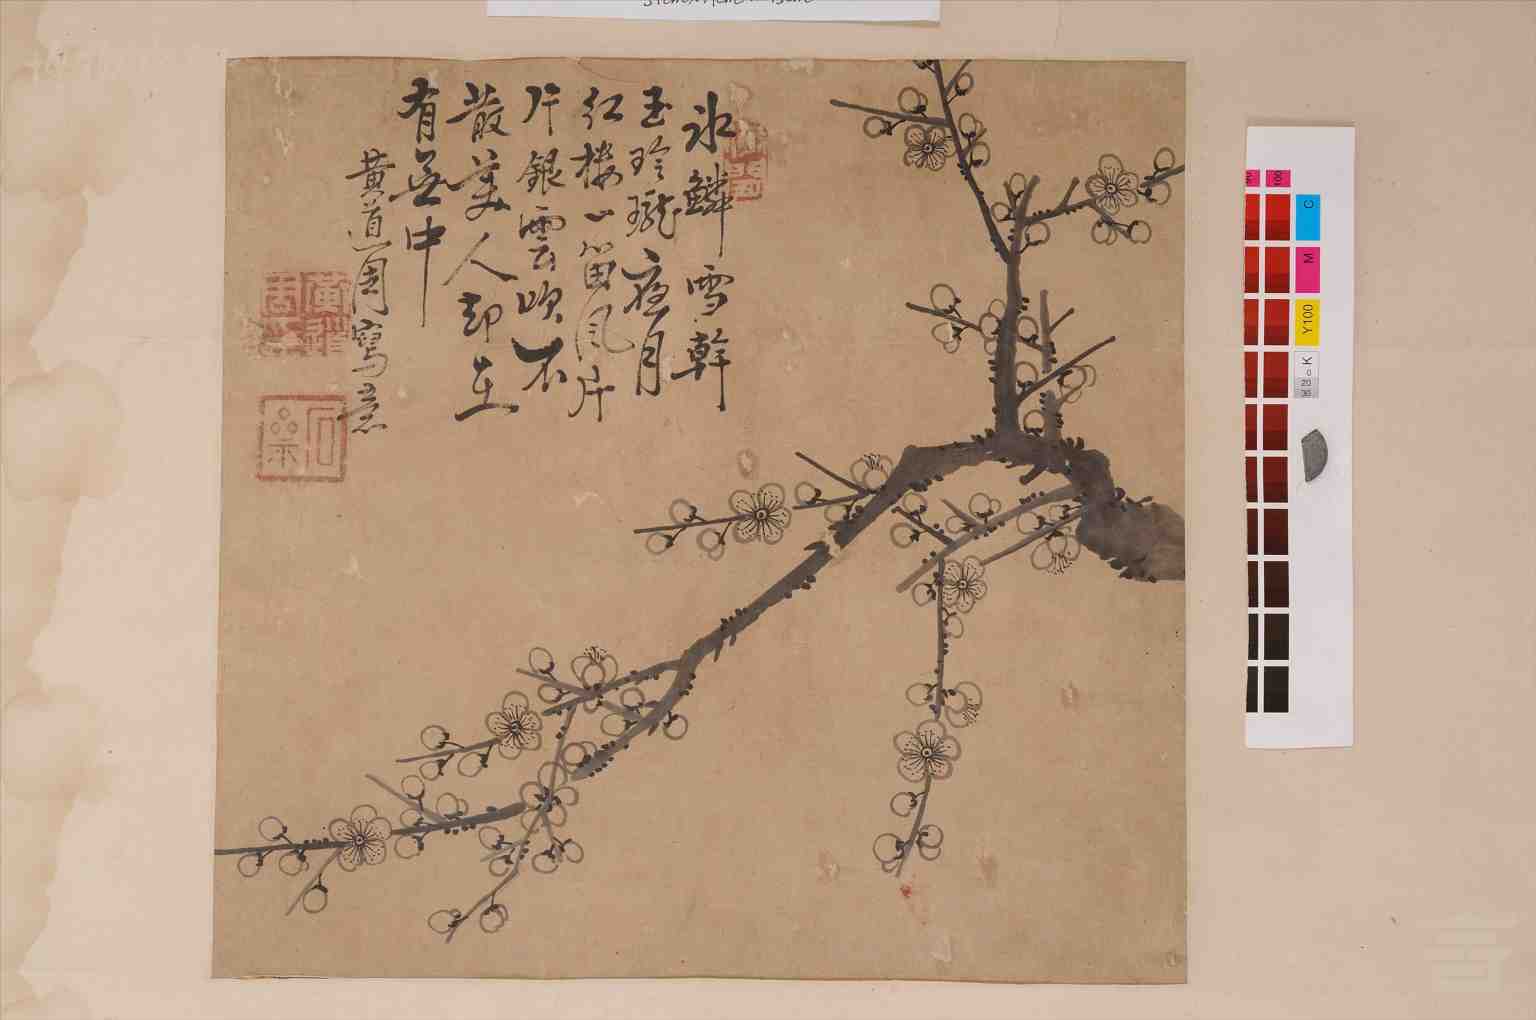 冰鱗雪幹
玉玲瓏夜月
紅樓一笛風片
片銀雲吹不
散美人却在
有無中
黃道周寫意
石
C
M
Y100
K
0
20
30
100